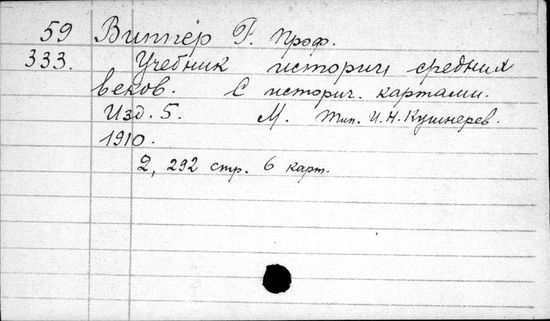 59 Виппер Р. Проф.
333. Учебник истории средних
веков. С историч. картами.
Изд. 5. М. Тип. И.Н. Кушнерев.
1910.
2, 292 стр. 6 карт.